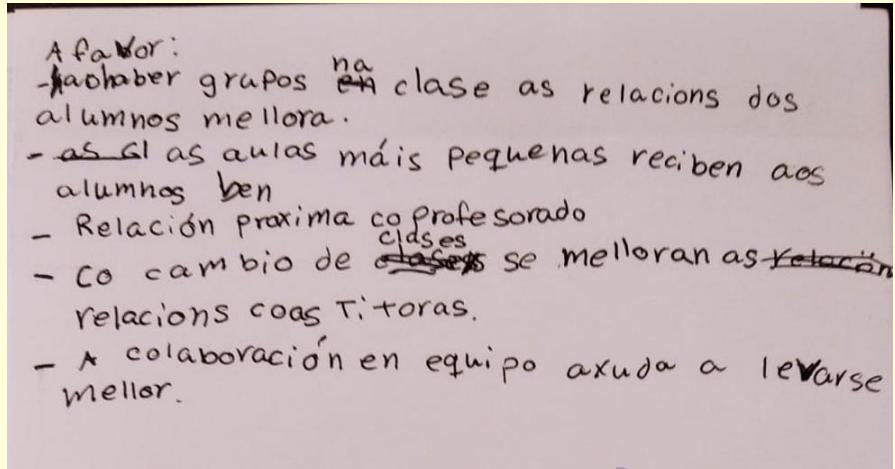 A favor:
- ao haber grupos na clase as relacions dos
alumnos mellora.
- as aulas máis pequenas reciben aos
alumnos ben
- Relación proxima co profesorado
- Co cambio de clases se melloran as
relacions coas Titoras.
- A colaboración en equipo axuda a levarse
mellor.